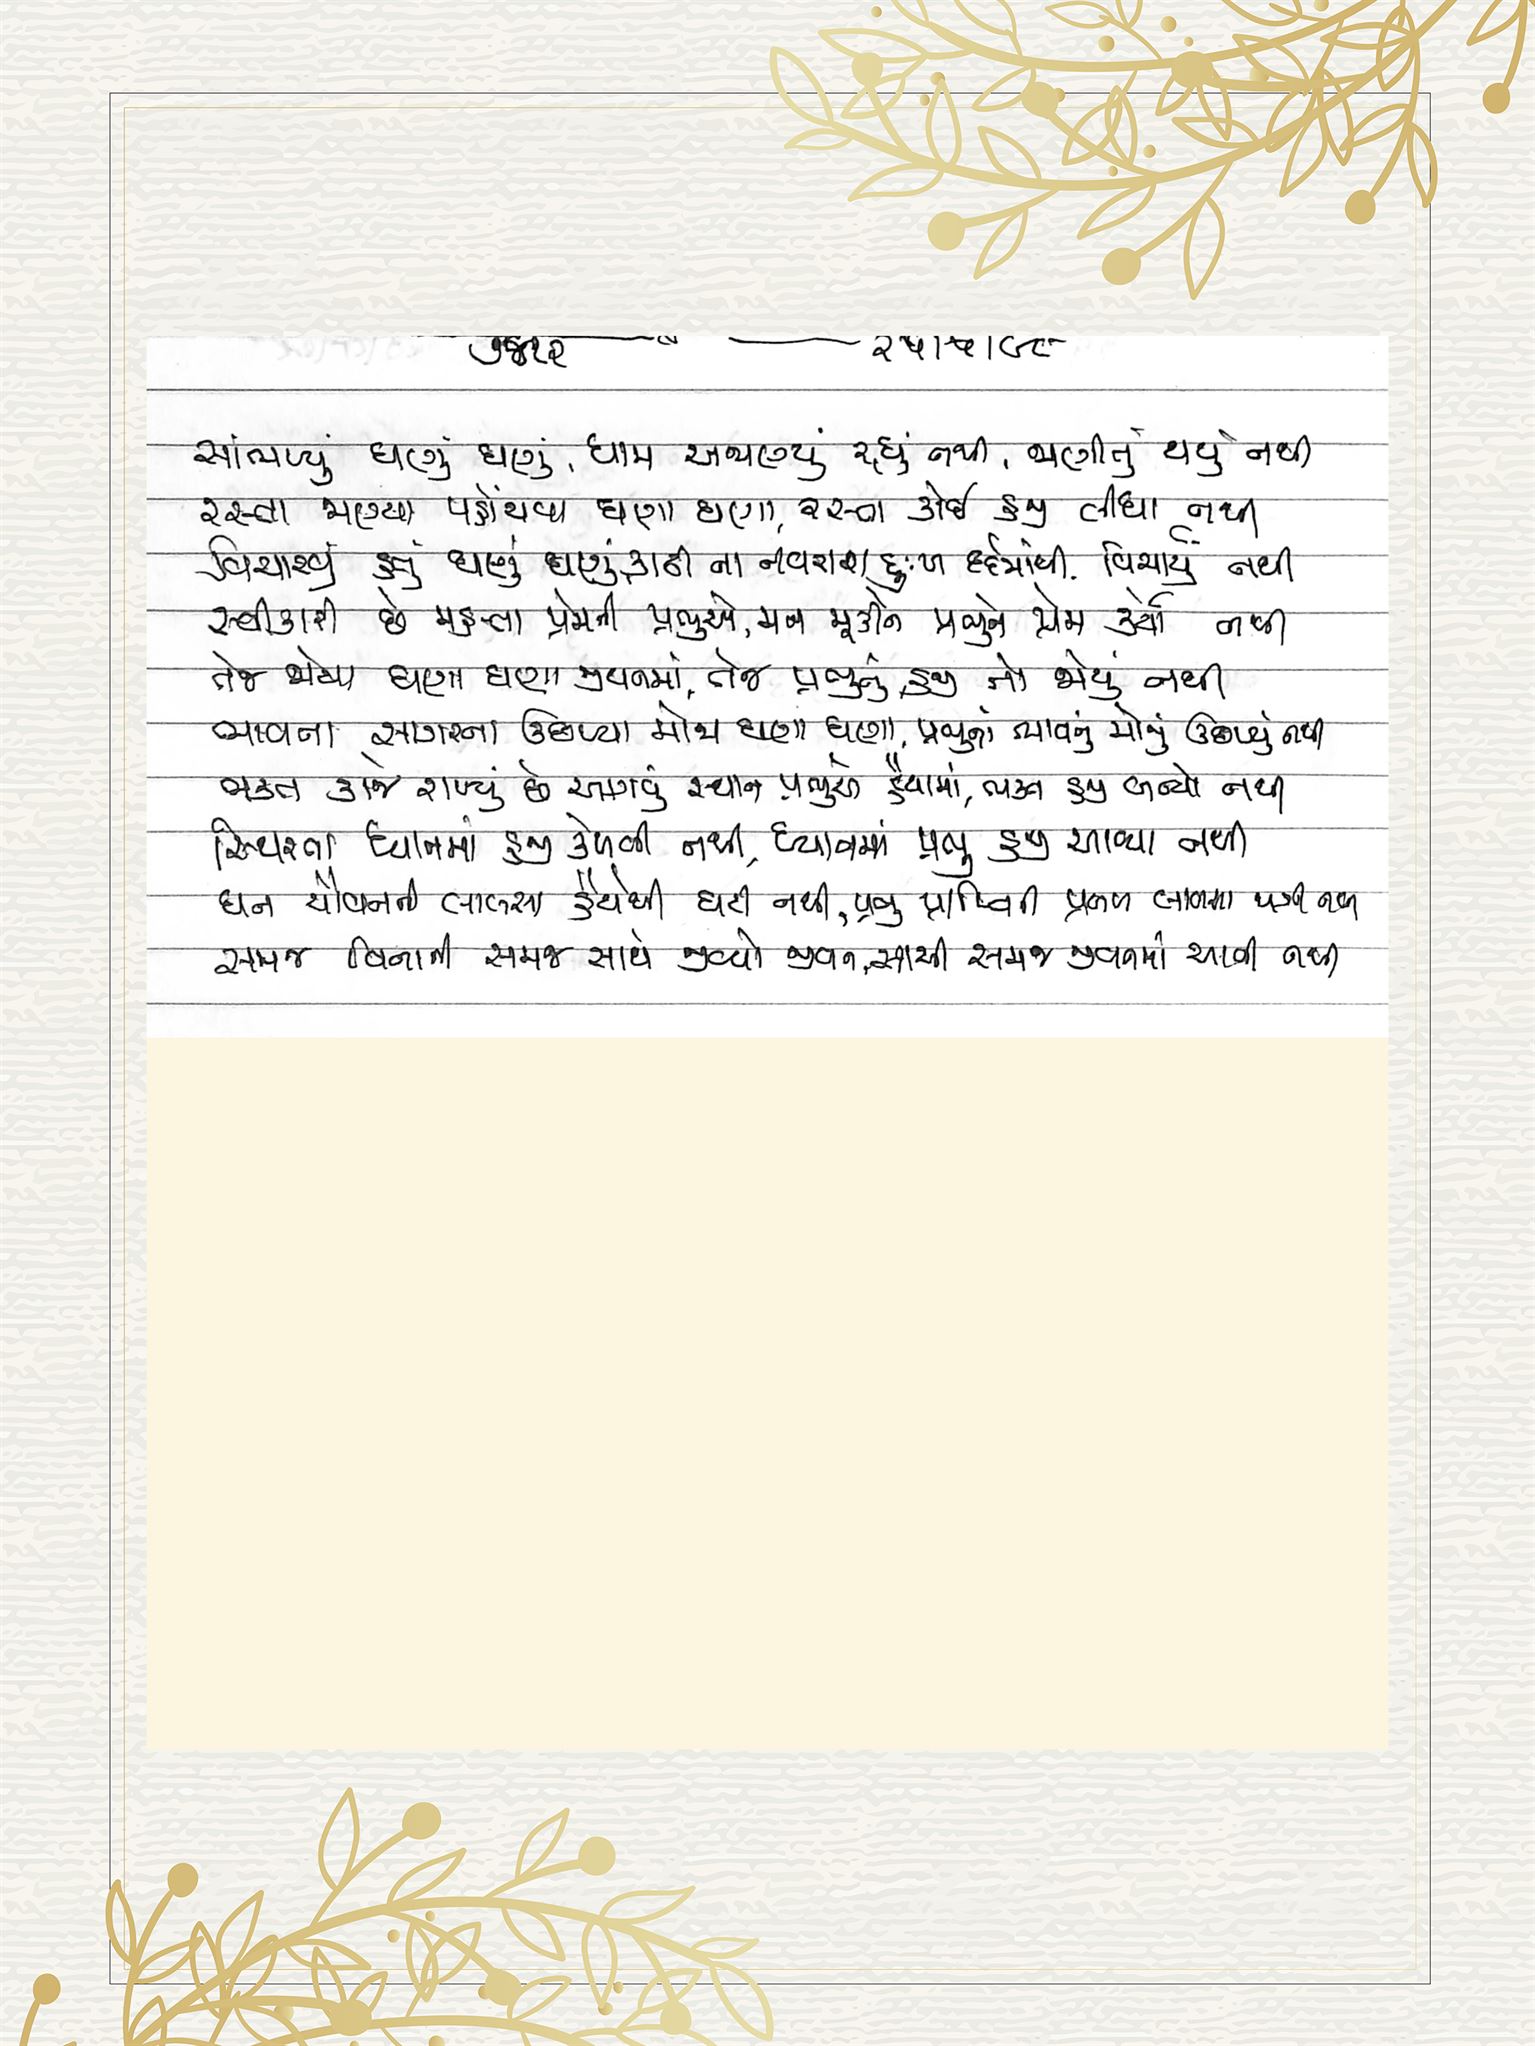 ૨૫।૫।૯૯
સાંભળ્યું ઘણું ઘણું, ધામ અજાણ્યું રહ્યું નથી, જાણીતું થયું નથી
રસ્તા જાણ્યા પહોંચવા ઘણા ઘણા, રસ્તા કોઈ હજી લીધા નથી
વિચારવું હતું ઘણું ઘણું, કાઢી ના નવરાશ દુઃખ દર્દમાંથી. વિચાર્યું નથી
સ્વીકારી છે મહત્તા પ્રેમની પ્રભુએ, મન મૂકીને પ્રભુને પ્રેમ કર્યો નથી
તેજ જોયા ઘણા ઘણા જીવનમાં, તેજ પ્રભુનું હજી તો જોયું નથી
ભાવના સાગરના ઉછળ્યા મોજા ઘણા ઘણા, પ્રભુનાં ભાવનું મોજું ઉછળ્યું નથી
ભક્ત કાજે રાખ્યું છે આગવું સ્થાન પ્રભુએ હૈયામાં, ભક્ત હજી બન્યો નથી
સ્થિરતા ધ્યાનમાં હજી કેળવી નથી, ધ્યાનમાં પ્રભુ હજી આવ્યા નથી
ધન યૌવનની લાલસા હૈયેથી હટી નથી, પ્રભુ પ્રાપ્તિની પ્રબળ લાલસા જાગી નથી
સમજ વિનાની સમજ સાથે જીવ્યો જીવન, સાચી સમજ જીવનમાં આવી નથી